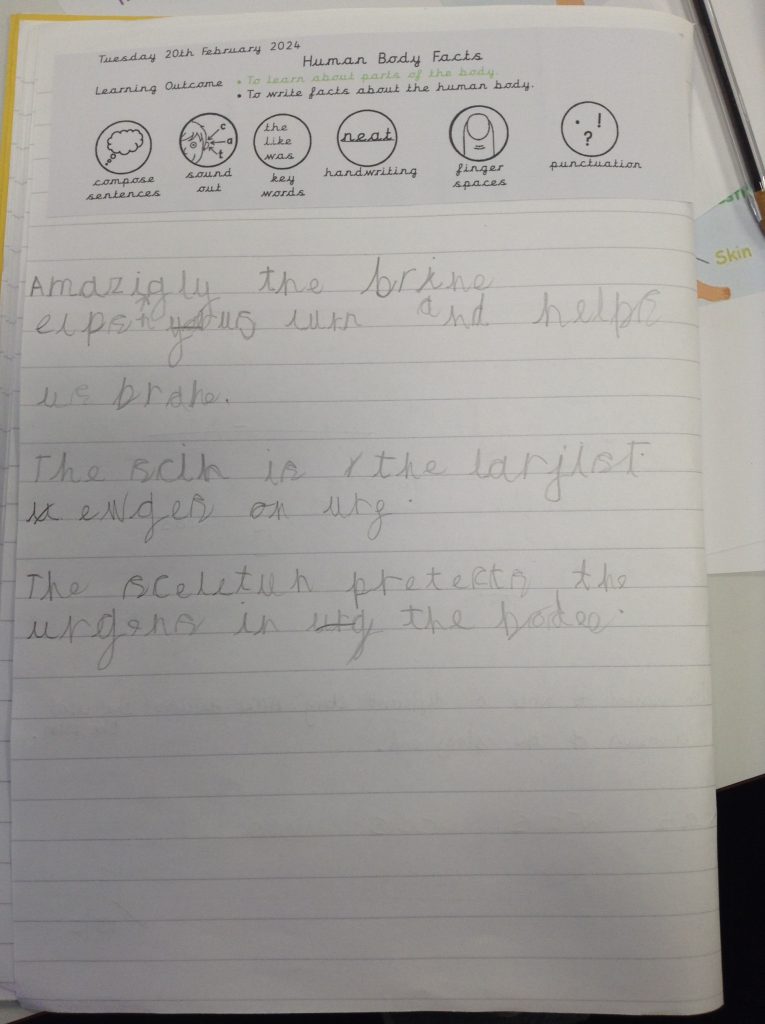 Tuesday 20th February 2024
Human Body Facts
Learning Outcome • To learn about parts of the body.
• To write facts about the human body.
the
like
was
neat
c
a
t
. ! ?
compose sentences
sound out
key words
handwriting
finger spaces
punctuation
Skin
Amazigly the brine
us lurn and helps
us brane.
The scin is the larjist
on urg.
The sceletun pretects the
urgens in the bodee.